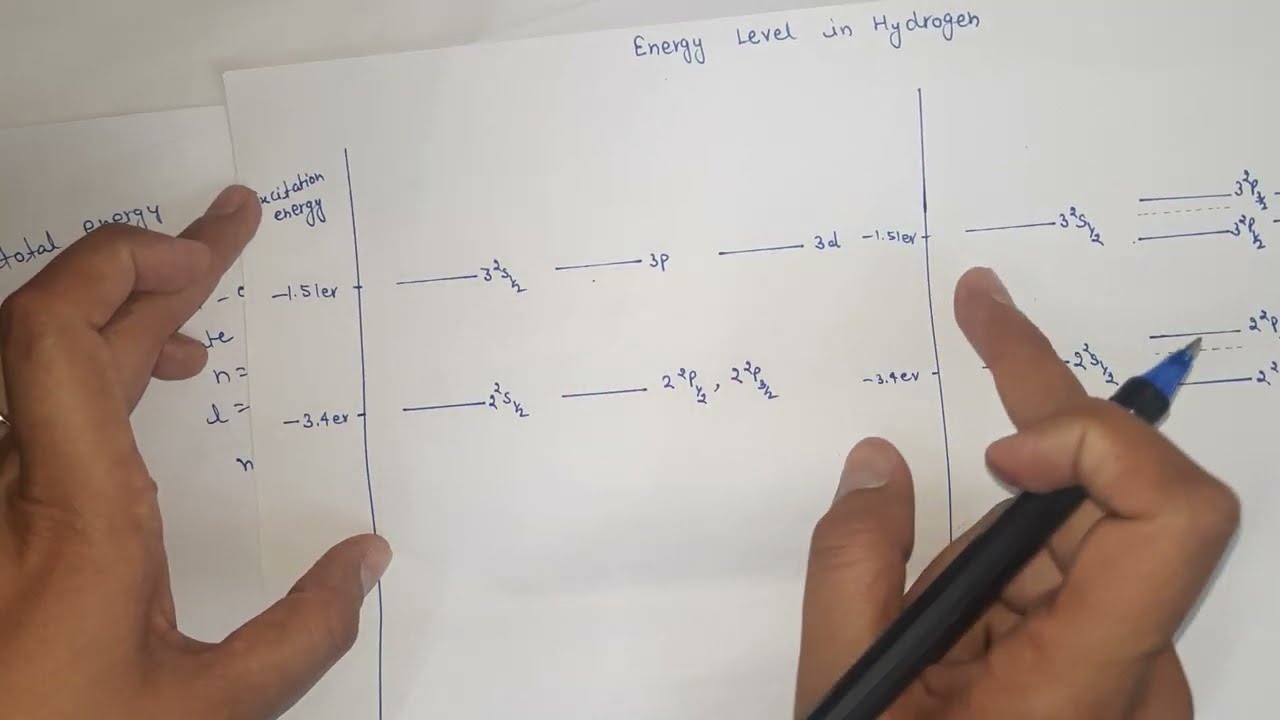 Energy Level in Hydrogen
total energy
n=
l=
n
xcitation
energy
-1.51er
3²S½
3p
3d
-3.4er
2²S½
2²P½, 2²P3/2
-1.51er
3²S½
3²P3/2
3²P½
-3.4er
2²S½
2²P
2²